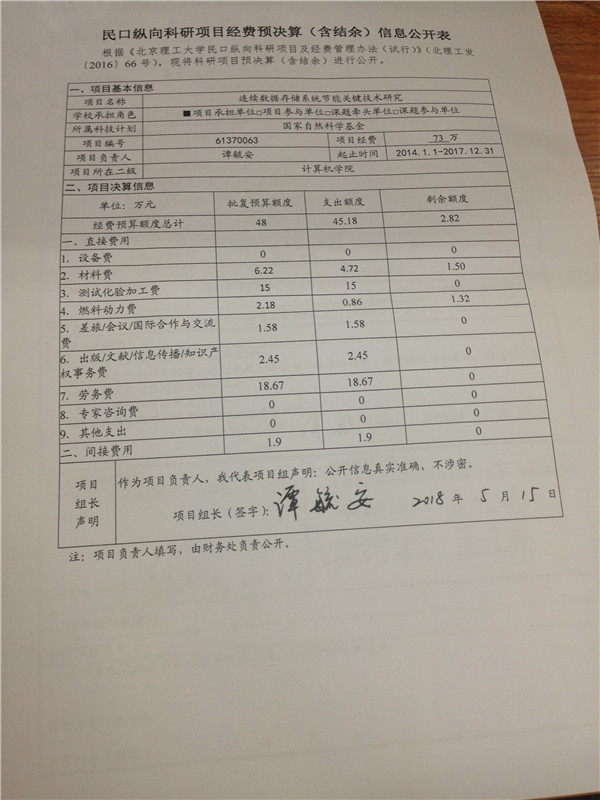 民口纵向科研项目经费预决算（含结余）信息公开表
根据《北京理工大学民口纵向科研项目及经费管理办法（试行）》（北理工发
〔2016〕66 号），现将科研项目预决算（含结余）进行公开。
一、项目基本信息
项目名称 连续数据存储系统节能关键技术研究
学校承担角色 ■项目承担单位□项目参与单位□课题牵头单位□课题参与单位
所属科技计划 国家自然科学基金
项目编号 61370063 项目经费 73 万
项目负责人 谭毓安 起止时间 2014.1.1-2017.12.31
项目所在二级 计算机学院
二、项目决算信息
单位：万元 批复预算额度 支出额度 剩余额度
经费预算额度总计 48 45.18 2.82
一、直接费用
1. 设备费 0 0 0
2. 材料费 6.22 4.72 1.50
3. 测试化验加工费 15 15 0
4. 燃料动力费 2.18 0.86 1.32
5. 差旅/会议/国际合作与交流
费 1.58 1.58 0
6. 出版/文献/信息传播/知识产
权事务费 2.45 2.45 0
7. 劳务费 18.67 18.67 0
8. 专家咨询费 0 0 0
9. 其他支出 0 0 0
二、间接费用 1.9 1.9 0
项目
组长
声明
作为项目负责人，我代表项目组声明：公开信息真实准确，不涉密。
项目组长（签字）：谭毓安 2018 年 5 月 15 日
注：项目负责人填写，由财务处负责公开。